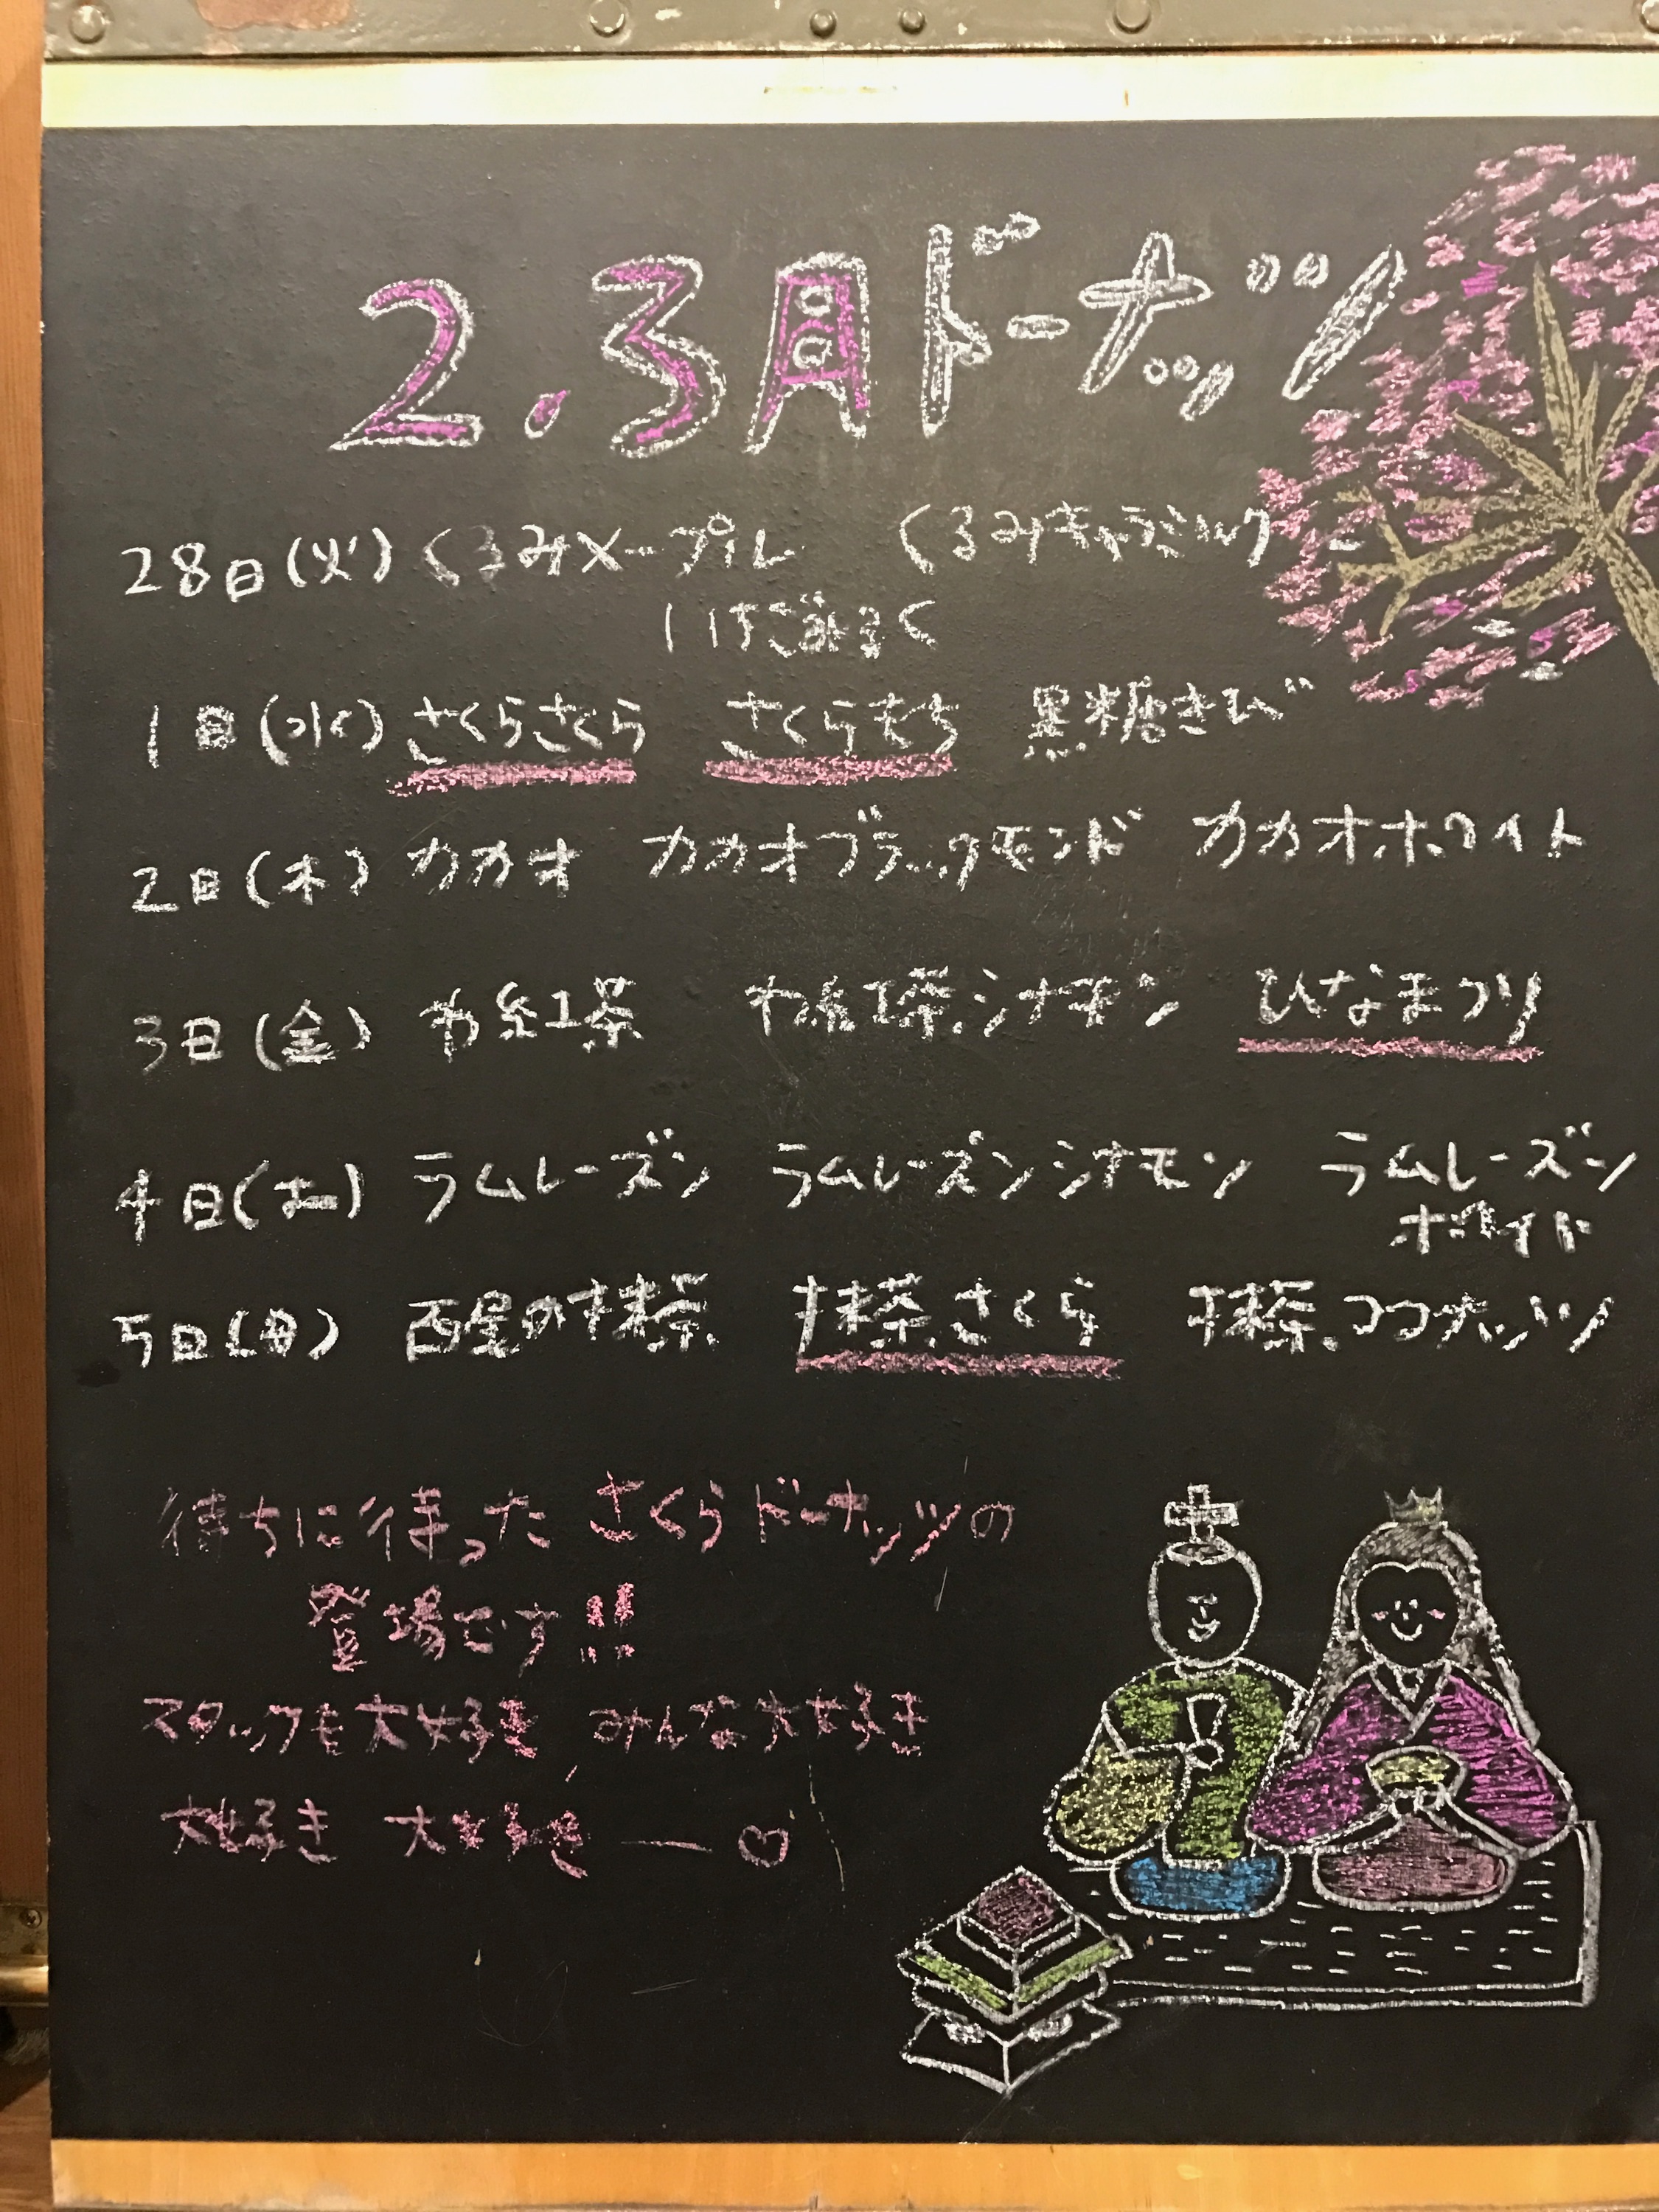 2.3月ドーナッツ
28日(火)くるみメープル くるみキャラミルク
いちごみるく
1日(水)さくらさくら さくらもち 黒糖きび
2日(木)カカオ カカオブラックモンド カカオホワイト
3日(金)わ紅茶 わ紅茶シナモン ひなまつり
4日(土)ラムレーズン ラムレーズンシナモン ラムレーズン
ホワイト
5日(日)西屋の抹茶 抹茶さくら 抹茶ココナッツ
待ちに待ったさくらドーナッツの
登場です!!
スタッフも大好き みんな大好き
大好き 大好き